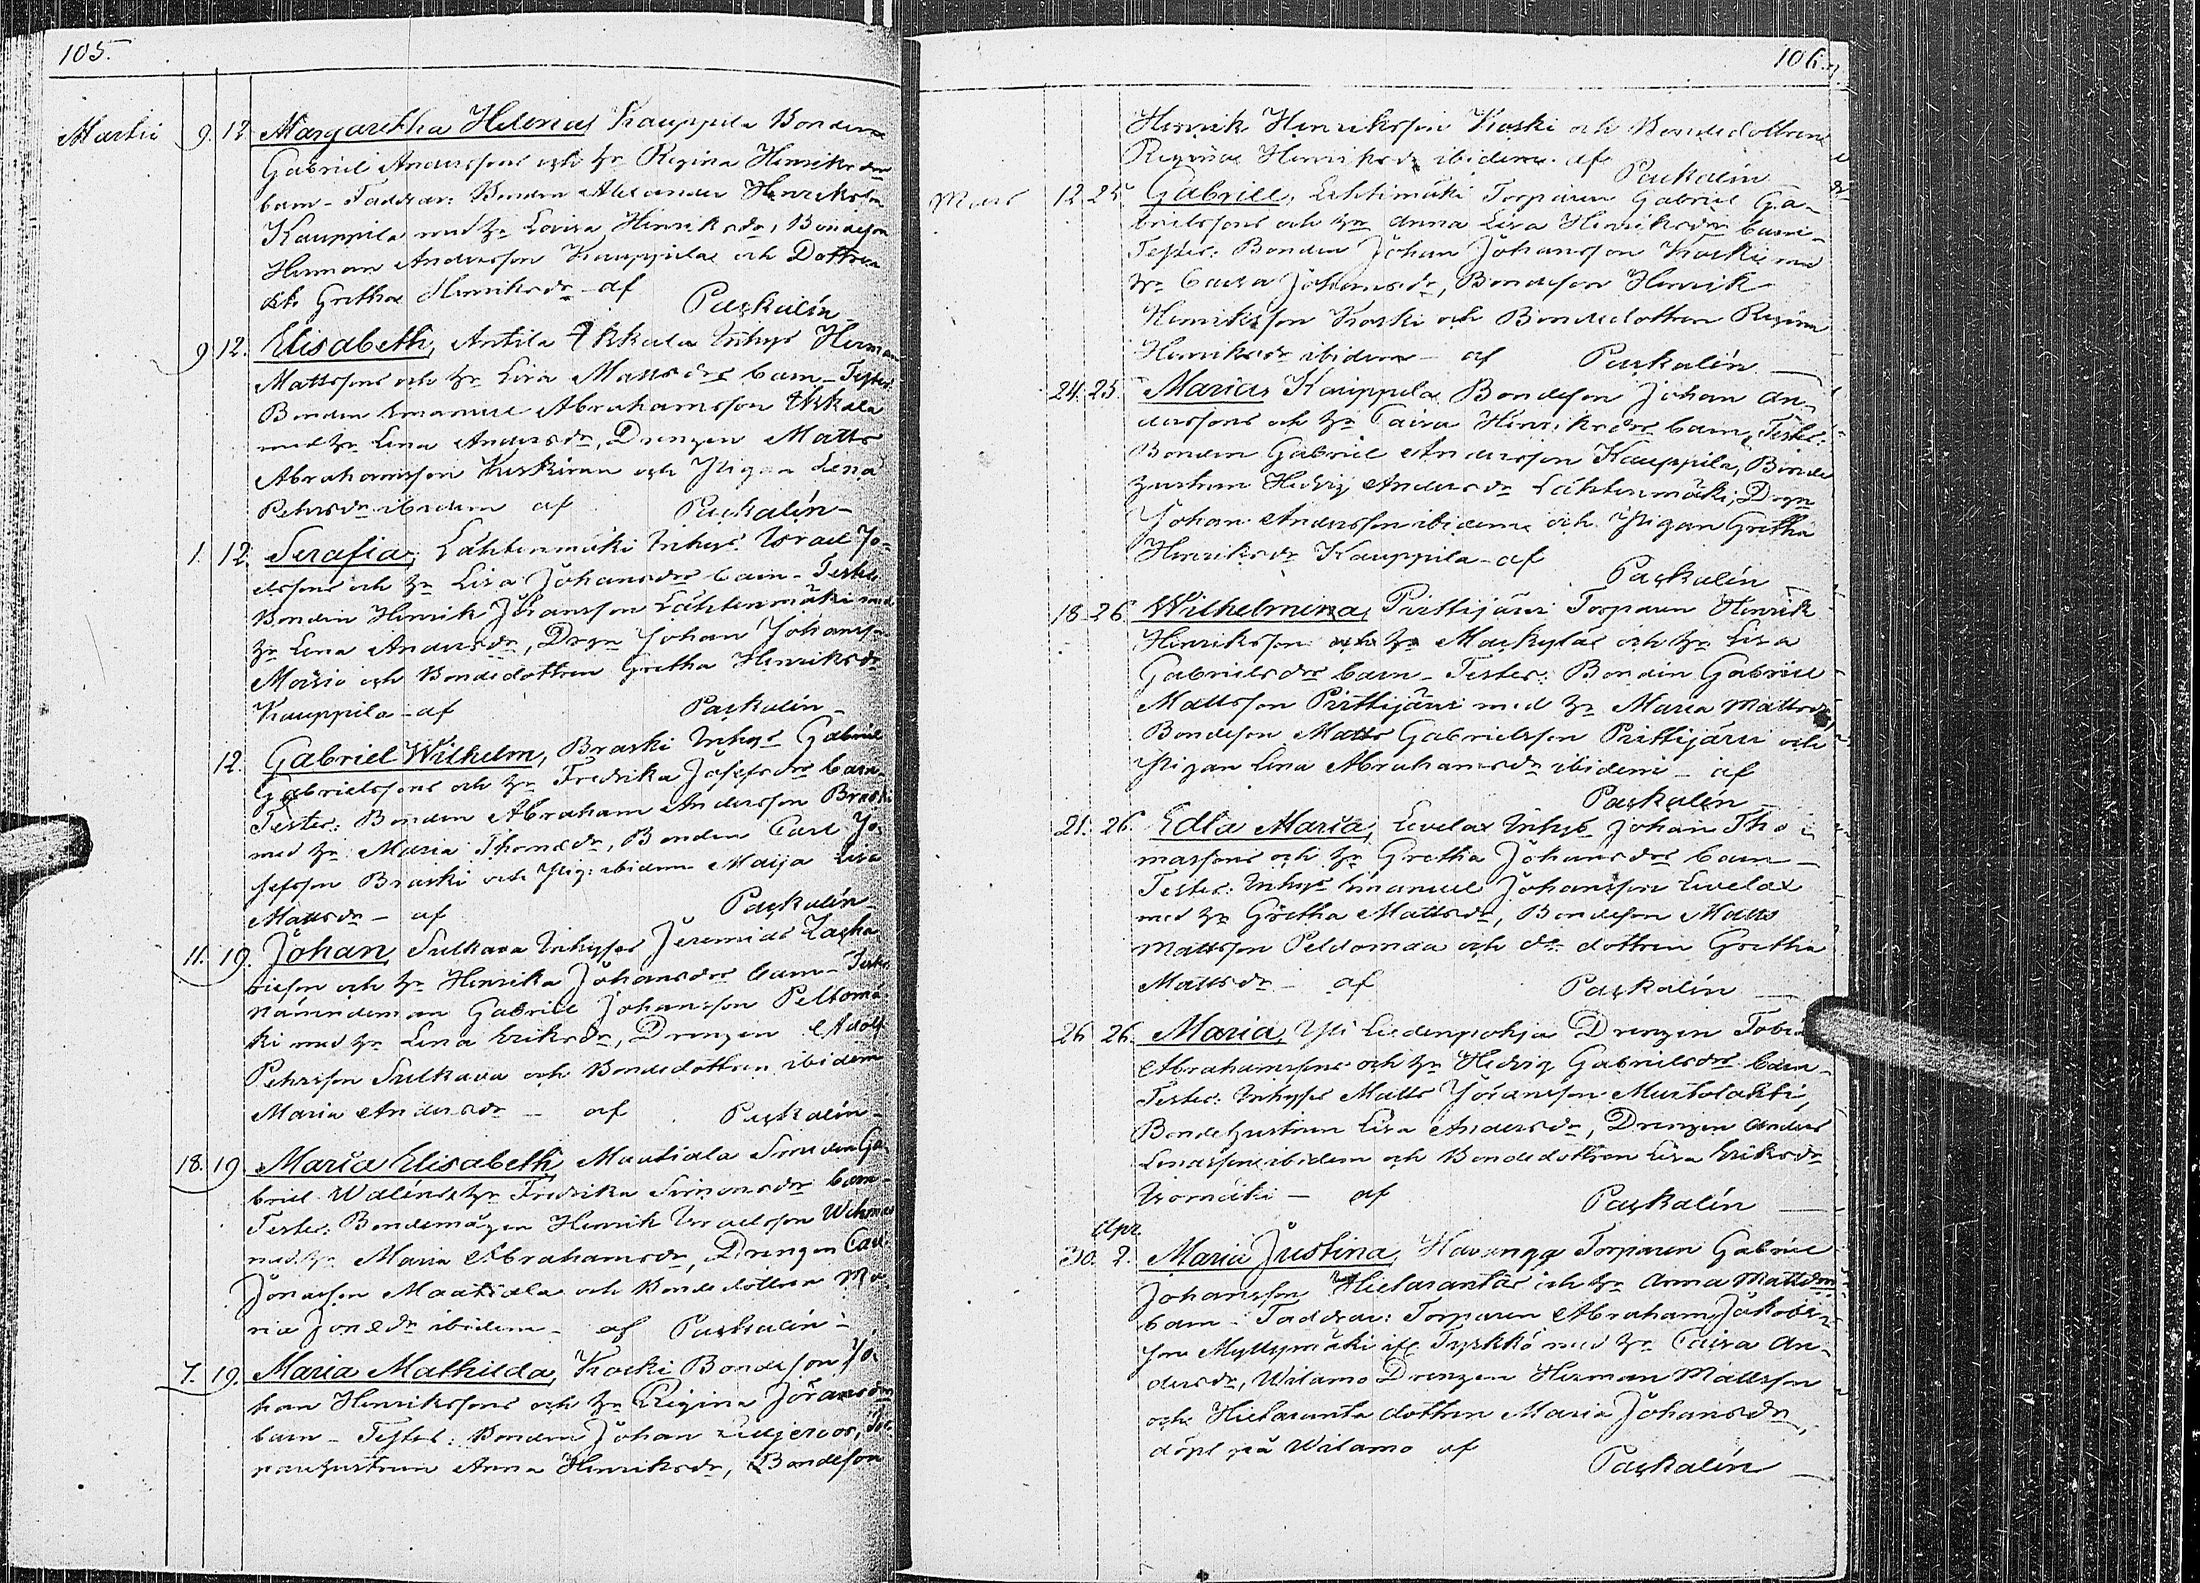 105.
Martii 9. 12 Margaretha Helena, Kauppila Bonden
Gabriel Anderssons och h:s Regina Henriksdrs
barn - Faddrar: Bonden Alexander Henriksson
Kauppila med h:u Lovisa Henriksdr, Bondeson
Herman Andersson Kauppila och Dottren
Gretha Henriksdr - af
Paskalín
9 12. Elisabeth, Antila Inhys Herman
Mattssons och h:u Lisa Mattsdrs barn - Testes:
Bonden Emanuel Abrahamsson
med h:u Lena Andersdr, Drengen Matts
Abrahamsson och Pigan Lena
Petersdr ibidem af Paskalín -
1. 12. Serafia, Lähtenmäki Inhys Israel Jo-
elssons och h:u Lisa Johansdrs barn - Testes
Bonden Henrik Johansson Lähtenmäki med
h:u Lena Andersdr, Drgn Johan Johansson
och Bondedottren Gretha Henriksdr
Kauppila - af Paskalín -
12. Gabriel Wilhelm, Braski Inhys Gabriel
Gabrielssons och h:u Fredrika Josefsdrs barn
Testes: Bonden Abraham Andersson Braski
med h:u Maria Thomædr, Bonden Carl Jo-
sefsson Braski och Pig: ibidem Maija Lisa
Mattsdr - af Paskalín
11. 19. Johan, Sulkava Inhyses Jeremias Zacha-
riesson och h:u Henrika Johansdrs barn - Testes
Nämndeman Gabriel Johansson Peltomä-
ki med h:u Lena Eriksdr, Drengen Adolf
Petersson Sulkava och Bondedottren ibidem
Maria Andersdr - af Paskalín -
18. 19 Maria Elisabeth, Maatiala Smeden Ga-
briel Waléns h:u Fredrika Simonsdrs barn -
Testes: Bondemågen Henrik Israelsson
med h:u Maria Abrahamsdr, Drengen Carl
Jonasson Maatiala och Bondedottren Ma-
ria Jonædr ibidem - af Paskalín -
7. 19. Maria Mathilda, Koski Bondeson Jo-
han Henrikssons och h:u Regina Jöransdrs
barn - Testes: Bonden Johan
Anna Henriksdr, Bondeson
106.
Henrik Henriksson Koski och Bondedottren
Regina Henriksdr ibidem. af Paskalín
Mars 12. 25. Gabriel, Lehtimäki Torparen Gabriel Ga-
brielssons och h:u Anna Lisa Henriksdrs barn -
Testes: Bonden Johan Johansson Koski med
h:u Caisa Johansdr, Bondeson Henrik
Henriksson Koski och Bondedottren Regina
Henriksdr ibidem - af Paskalín
24. 25. Maria, Kauppila Bondeson Johan An-
derssons och h:u Caisa Henriksdrs barn, Testes:
Bonden Gabriel Andersson Kauppila, Bonde
hustrun Hedvig Andersdr Lähtenmäki, Drgn
Johan Andersson ibidem och Pigan Gretha
Henriksdr Kauppila - af Paskalín
18. 26 Wilhelmina, Pirttijärvi Torparen Henrik
Henriksson och h:u Lisa
Gabrielsdrs barn - Testes: Bonden Gabriel
Mattsson Pirttijärvi med h:u Maria Mattsdr
Bondeson Matts Gabrielsson Pirttijärvi och
Pigan Lena Abrahamsdr ibidem - af
Paskalín
21. 26. Edla Maria, Levelax Inhys Johan Tho-
massons och h:u Gretha Johansdrs barn -
Testes: Inhys Emanuel Johansson Levelax
med h:u Gretha Mattsdr, Bondeson Matts
Mattsson Peldomaa och do dottren Gretha
Mattsdr - af Paskalín
26 26. Maria, Yli Liedenpohja Drengen Tobias
Abrahamssons och h:u Hedvig Gabrielsdrs barn -
Testes: Inhyses Matts Jöransson Mustolahti,
Bondehustrun Lisa Andersdr, Drengen Anders
ibidem och Bondedottren Lisa Eriksdr
Isomäki - af Paskalín
Apr.
30. 2. Maria Justina, Torparen Gabriel
Johansson Hietaranta och h:u Anna Mattsdrs
barn - Faddrar: Torparen Abraham Jakobs-
son Myllymäki med h:u Caisa An-
dersdr, Wilamo Drengen Herman Mattsson
och Hietaranta dottren Maria Johansdr,
döpt på Wilamo af
Paskalín